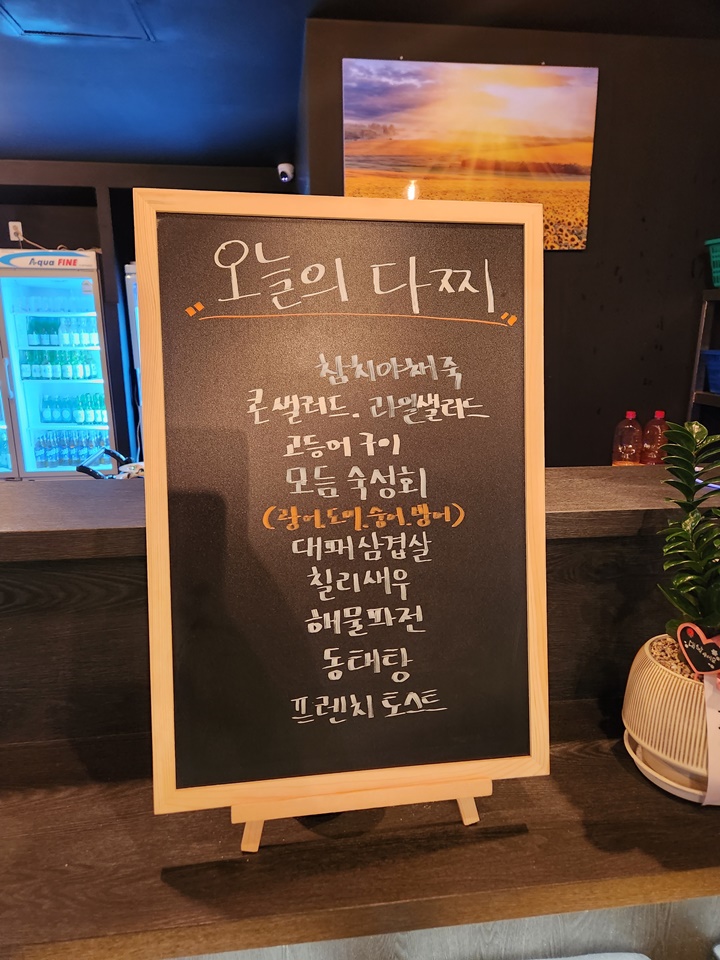 Aqua FINE
"오늘의 다찌"
참치야채죽
콘샐러드. 과일샐러드
고등어 구이
모듬 숙성회
(광어.도미.숭어.방어)
대패삼겹살
칠리새우
해물파전
동태탕
프렌치 토스트